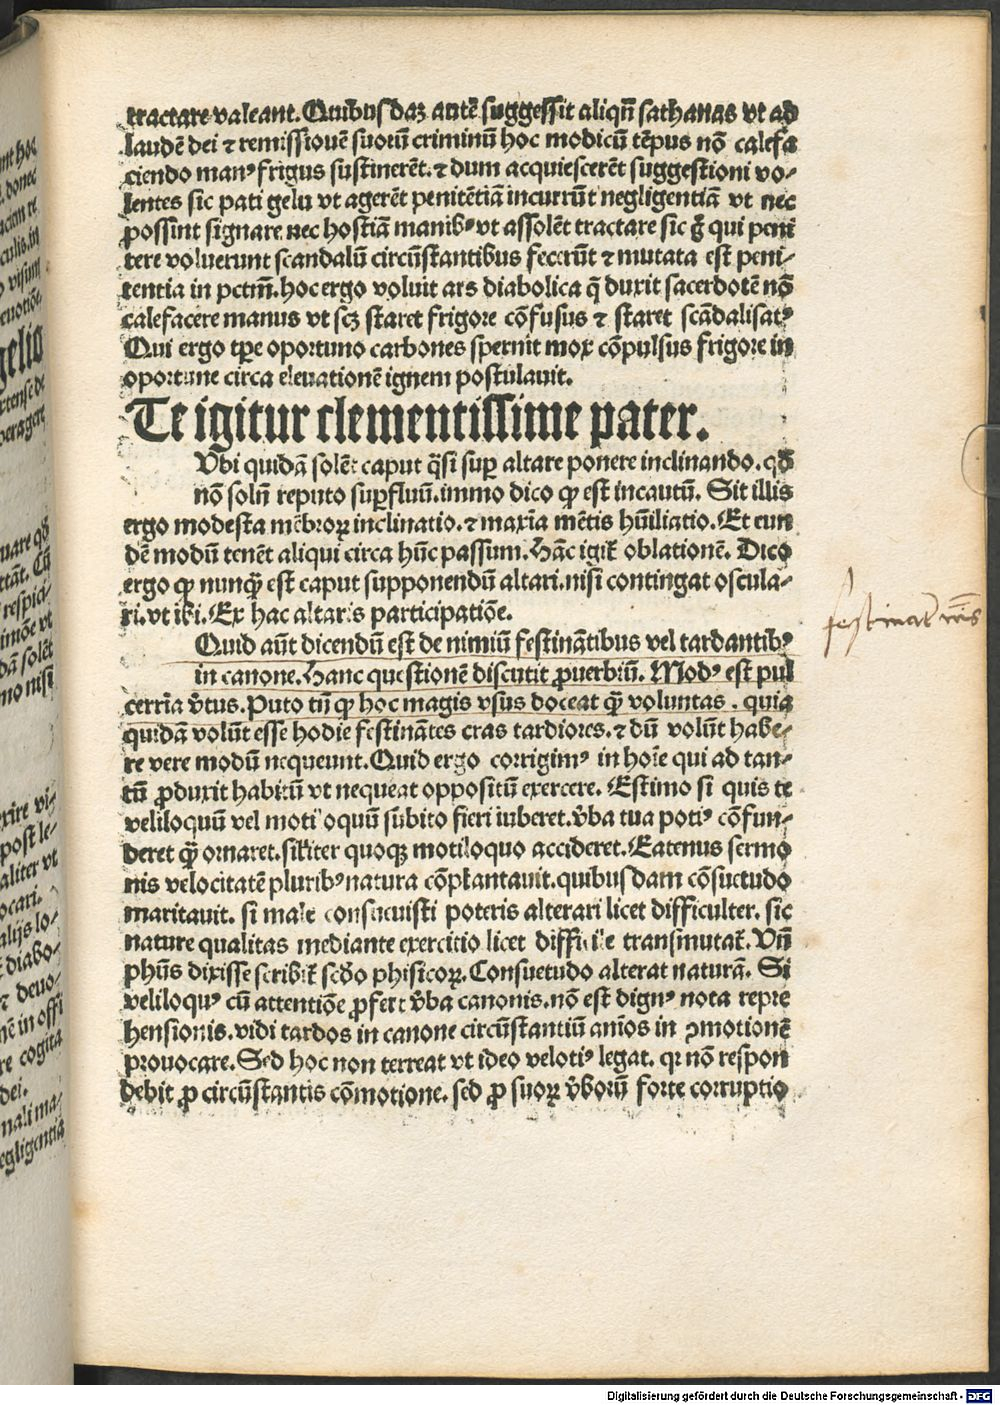 tractare valeant. Quibusdaꝫ autē suggessit aliqñ sathanas vt ad
laudē dei ⁊ remissiouē suorū criminū hoc modicū tēpus nō calefa
ciendo manꝰ frigus sustinerēt. ⁊ dum acquiescerēt suggestioni vo⸗
lentes sic pati gelu vt agerēt penitētiā incurrūt negligentiā vt nec
possint signare nec hostiā manibꝰ vt assolēt tractare sic qui peni
tere voluerunt scandalū circūstantibus fecerūt ⁊ mutata est peni⸗
tentia in pctm̄. hoc ergo voluit ars diabolica q̄ duxit sacerdotē nō
calefacere manus vt scꝫ staret frigore cōfusus ⁊ staret scādalisatꝰ
Qui ergo tꝑe oportuno carbones spernit mox cōpulsus frigore in
oportune circa eleuationē ignem postulauit.
Te igitur clementissime pater.
Vbi quidā solēt caput q̄si suꝑ altare ponere inclinando. qđ
nō solū reputo suꝑfluū. immo dico ꝙ est incautū. Sit illis
ergo modesta mēbroꝝ inclinatio. ⁊ maxīa mētis hūiliatio. Et eun
dē modū tenēt aliqui circa hūc passum. Hāc igit᷑ oblationē. Dico
ergo ꝙ nunq̄ȝ est caput supponendū altari. nisi contingat oscula⸗
ri. vt ibi. Ex hac altaris participatiōe.
Quid aūt dicendū est de nimiū festinātibus vel tardantibꝰ
in canone. Hanc questionē discutit ꝓuerbiū. Modꝰ est pul
cerrīa v̄tus. Puto tn̄ ꝙ hoc magis vsus doceat q̄ȝ voluntas. quia
quidā volūt esse hodie festinātes cras tardiores. ⁊ dū volūt habe⸗
re vere modū nequeunt. Quid ergo corrigimꝰ in hoīe qui ad tan⸗
tū ꝓduxit habitū vt nequeat oppositū exercere. Estimo si quis te
veliloquū vel motiloquū sūbito fieri iuberet. v̄ba tua potiꝰ cōfun⸗
deret q̄ȝ ornaret. silīter quoqꝫ motiloquo accideret. Eatenus sermo
nis velocitatē pluribꝰ natura cōplantauit. quibusdam cōsuetudo
maritauit. si male consueuisti poteris alterari licet difficulter. sic
nature qualitas mediante exercitio licet difficile transmutat᷑. Vn̄
phūs dixisse scribit᷑ scđo phisicoꝝ. Consuetudo alterat naturā. Si
veliloquꝰ cū attentiōe ꝓfert v̄ba canonis. nō est dignꝰ nota repre
hensionis. vidi tardos in canone circūstantiū aīos in ꝯmotionē
prouocare. Sed hoc non terreat vt ideo velotiꝰ legat. qꝛ nō respon
debit ꝓ circūstantis cōmotione. sed ꝓ suoꝝ v̄borū forte corruptio
Digitalisierung gefördert durch die Deutsche Forschungsgemeinschaft - DFG